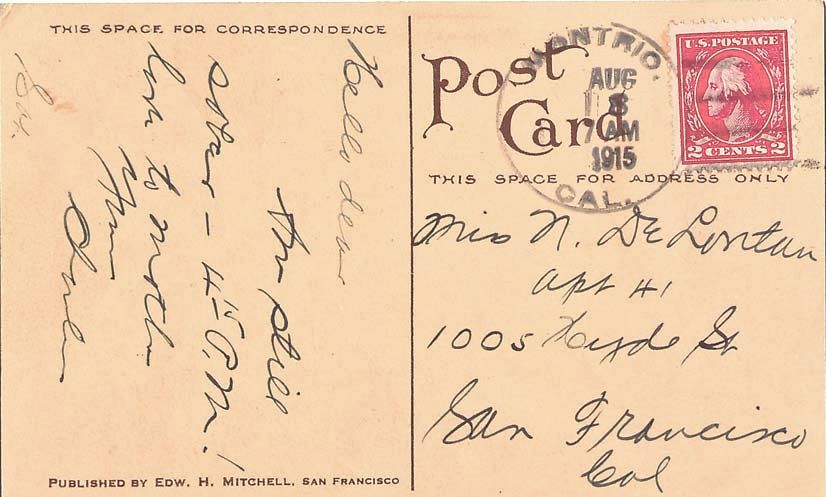 THIS SPACE FOR CORRESPONDENCE
Hello dear
Am still
sober - 4 15 P.M.!
love to mother
PUBLISHED BY EDW. H. MITCHELL, SAN FRANCISCO
Post
Card
MONTRIO.
AUG
8
7 AM
1915
CAL.
U.S. POSTAGE
2 CENTS 2
THIS SPACE FOR ADDRESS ONLY
Miss N. De Lontan
apt 41
1005 Hyde St
San Francisco
Cal